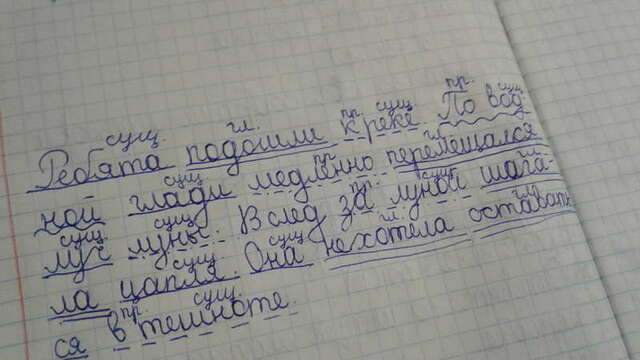 сущ. гл. пр. сущ. пр. сущ.
Ребята подошли к реке. По вод-
сущ. пр. гл.
ной глади медленно перемещался
сущ. сущ. пр. сущ. гл.
луч луны. Вслед за луной шага-
сущ. сущ. гл. гл.
ла цапля. Она не хотела оставать
пр. сущ.
ся в темноте.